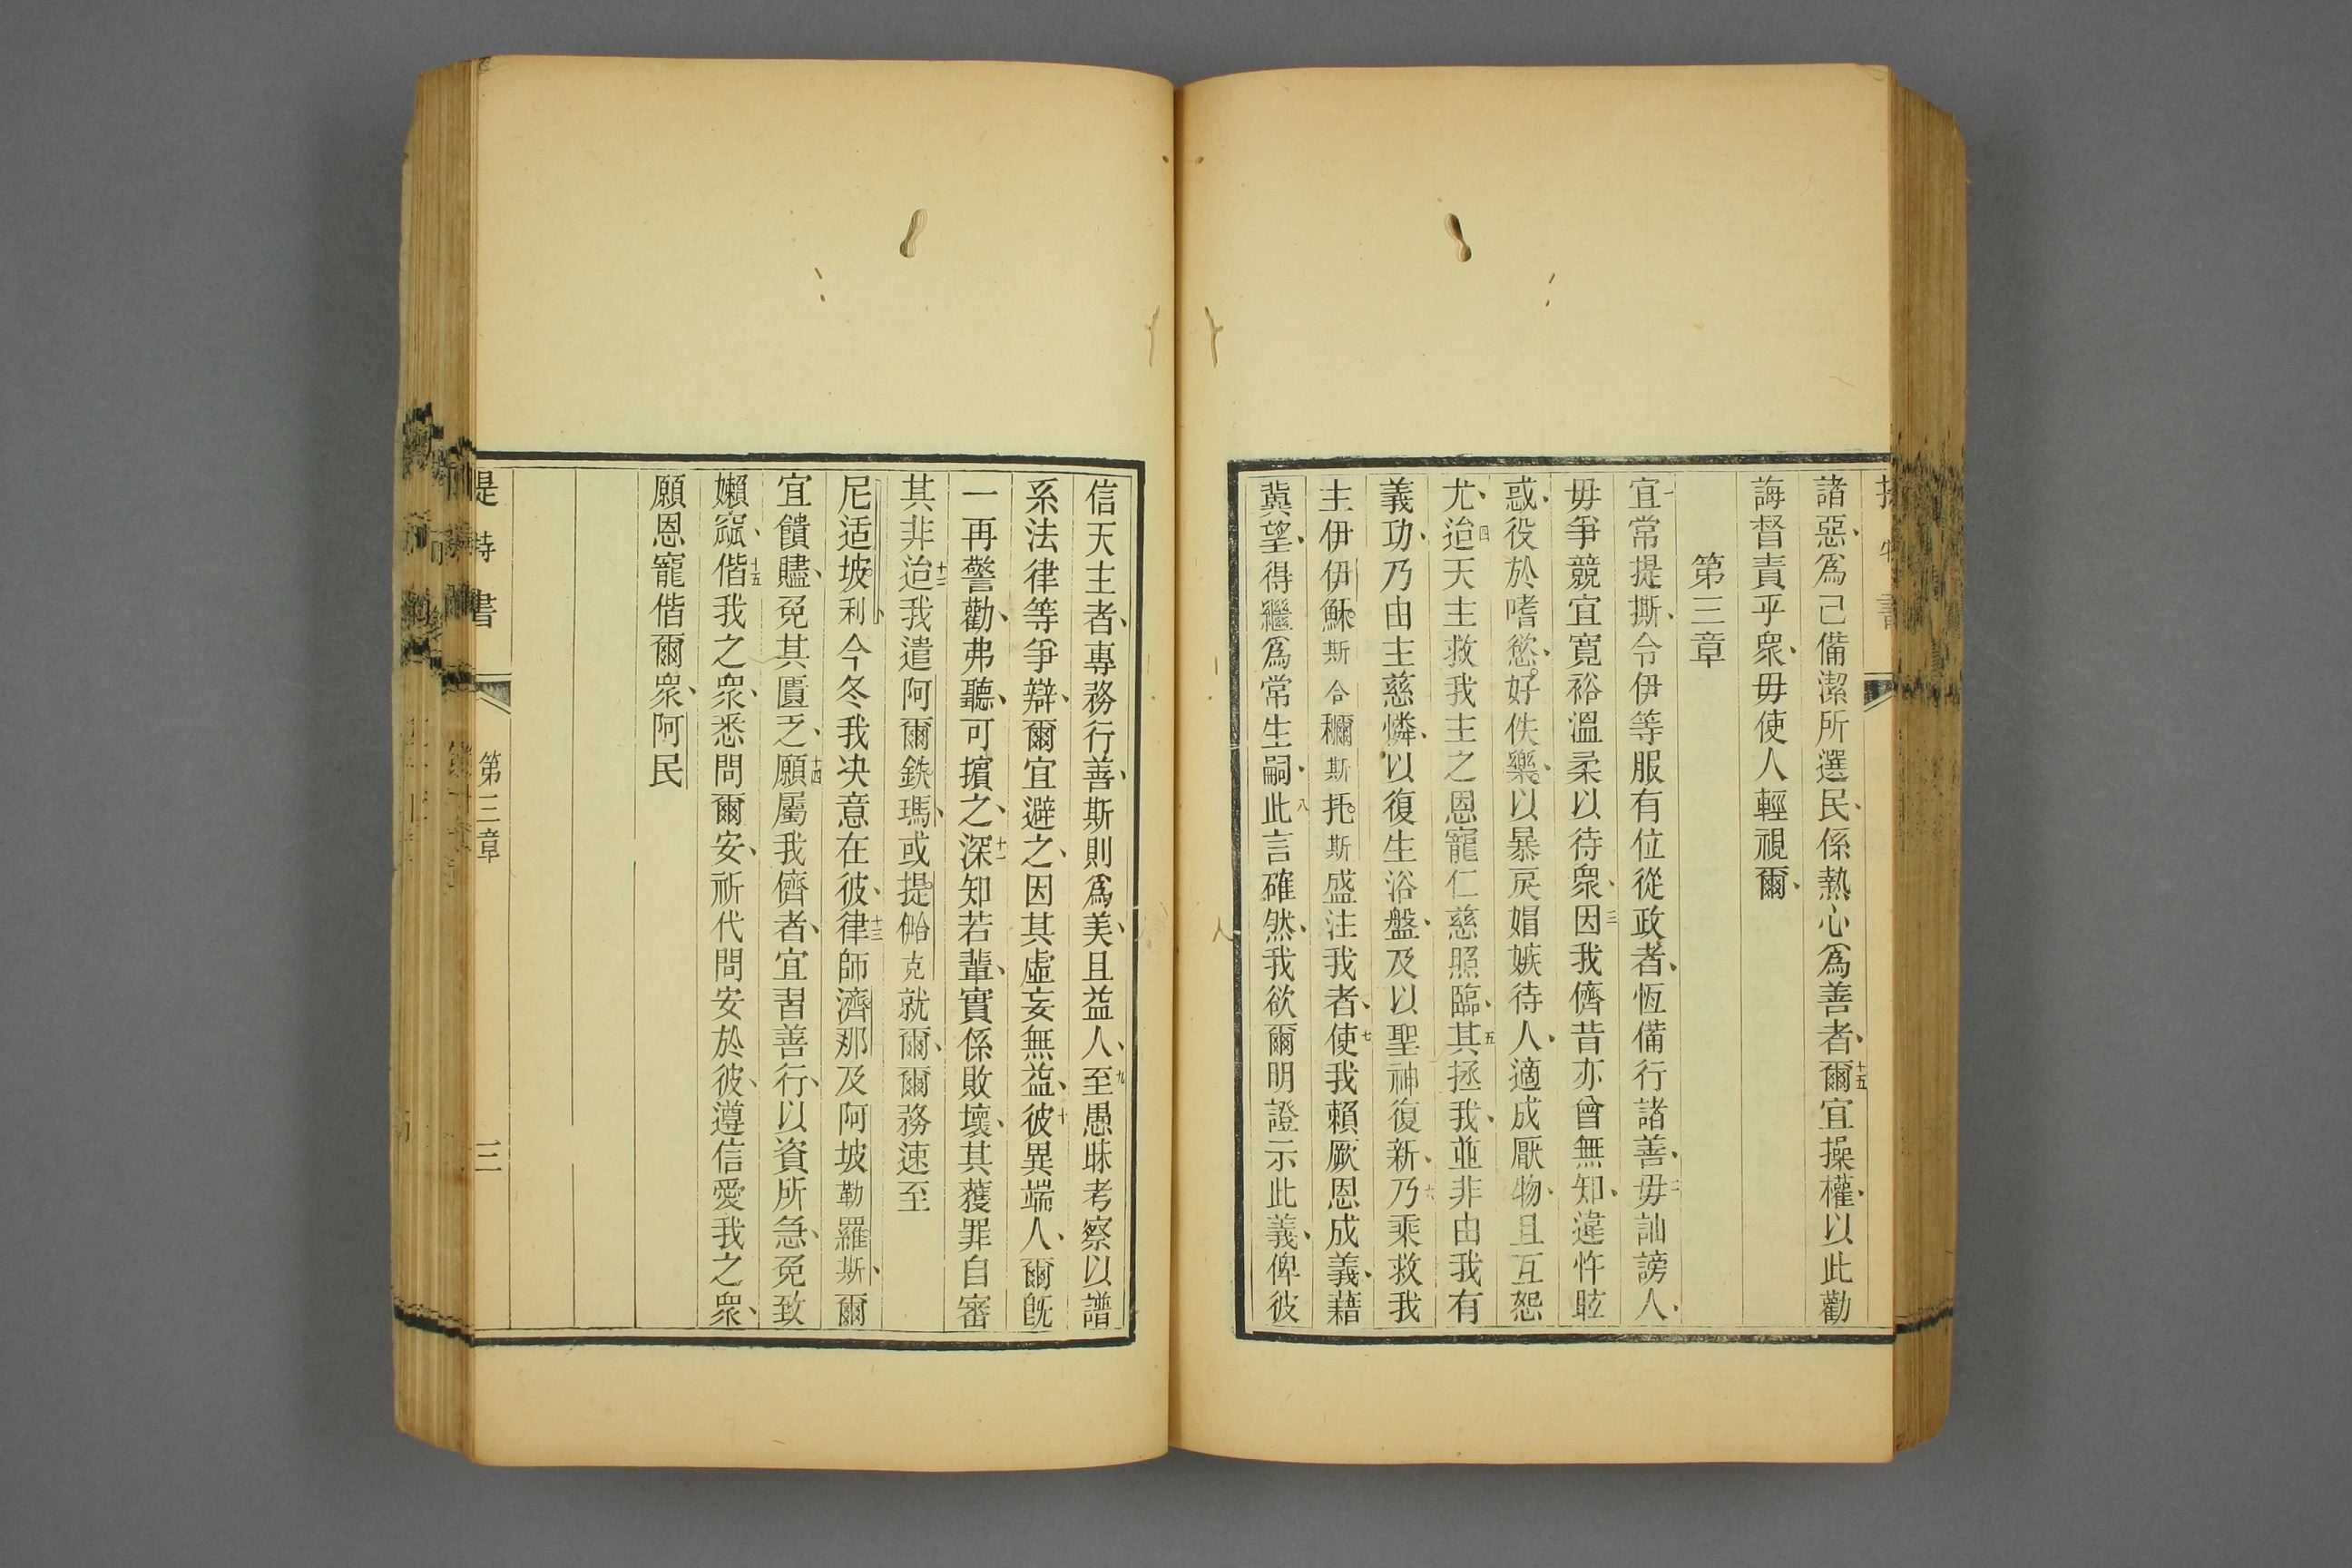 諸惡、爲己備潔所選民、係熱心爲善者、十五爾宜操權、以此勸
誨督責乎衆、毋使人輕視爾、
第三章
一宜常提撕、令伊等服有位從政者、恆備行諸善、二毋訕謗人、
毋爭競宜寛裕溫柔以待衆、三因我儕昔亦曾無知、違忤眩
惑、役於嗜慾、好佚樂、以暴戾娼嫉待人、適成厭物、且互怨
尤、四迨天主救我主之恩寵仁慈照臨、五其拯我、並非由我有
義功、乃由主慈憐、以復生浴盤、及以聖神復新、六乃乘救我
主伊伊穌斯合穪斯托斯盛注我者、七使我賴厥恩成義、藉
冀望、得繼爲常生嗣、八此言確然、我欲爾明證示此義、俾彼
信天主者、專務行善、斯則爲美、且益人、九至愚昧考察以譜
系法律等爭辯、爾宜避之、因其虛妄無益、十彼異端人、爾旣
一再警勸、弗聽、可擯之、十一深知若輩、實係敗壞、其蒦罪自審
其非十二迨我遣阿爾銕瑪、或提𠎠克就爾、爾務速至
尼适坡利、今冬我决意在彼、十三律師濟那及阿坡勒羅斯、爾
宜饋贐、免其匱乏、十四願屬我儕者、宜習善行、以資所急、免致
嬾窳、十五偕我之衆、悉問爾安、祈代問安於彼、遵信愛我之衆、
願恩寵偕爾衆、阿民
提特書
第三章
三